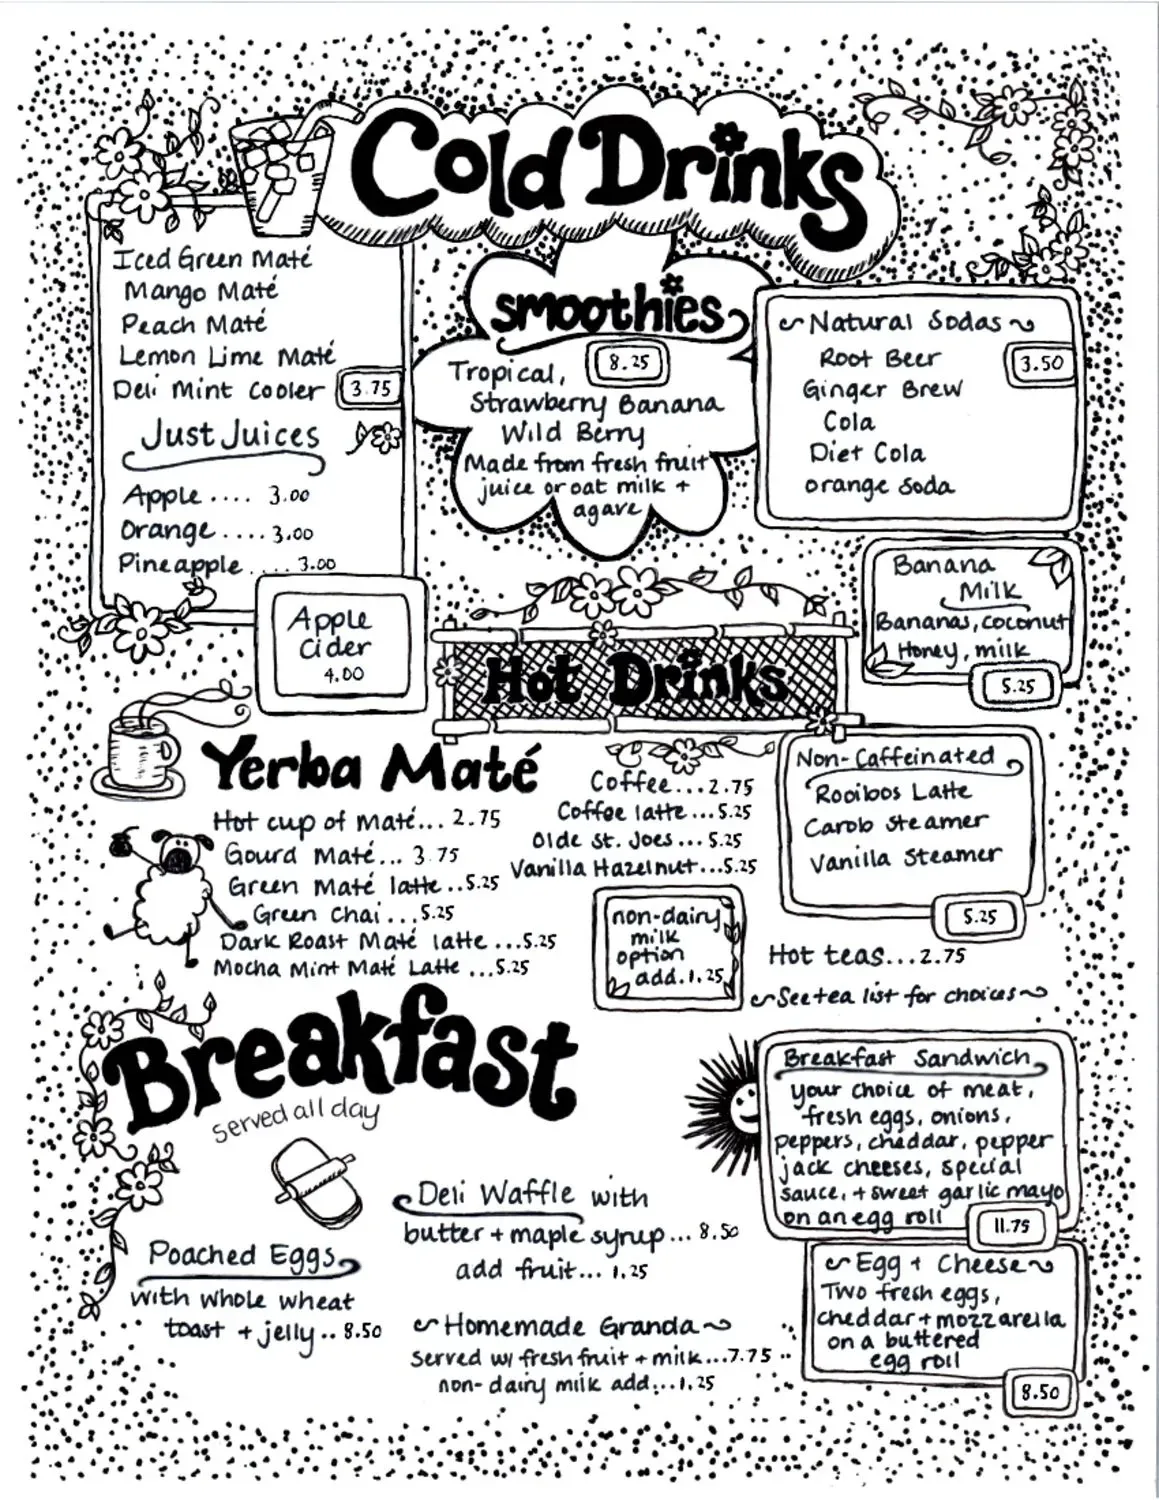 Cold Drinks
Iced Green Maté
Mango Maté
Peach Maté
Lemon Lime Maté
Deli Mint Cooler 3.75
Just Juices
Apple .... 3.00
Orange .... 3.00
Pineapple .... 3.00
Apple
Cider
4.00
smoothies
8.25
Tropical,
Strawberry Banana
Wild Berry
Made from fresh fruit
juice or oat milk +
agave
Natural Sodas
Root Beer 3.50
Ginger Brew
Cola
Diet Cola
orange soda
Banana
Milk
Bananas, coconut
Honey, milk
5.25
Hot Drinks
Yerba Maté
Hot cup of maté... 2.75
Gourd Maté... 3.75
Green Maté latte..5.25
Green Chai...5.25
Dark Roast Maté latte ...5.25
Mocha Mint Maté Latte ...5.25
Coffee...2.75
Coffee latte ...5.25
Olde St. Joes... 5.25
Vanilla Hazelnut...5.25
non-dairy
milk
option
add.1.25
Non-Caffeinated
Rooibos Latte
Carob Steamer
Vanilla Steamer
5.25
Hot teas...2.75
See tea list for choices
Breakfast
served all day
Poached Eggs
with whole wheat
toast + jelly..8.50
Deli Waffle with
butter + maple syrup... 8.50
add fruit... 1.25
Homemade Granola
Served w/ fresh fruit + milk...7.75
non-dairy milk add...1.25
Breakfast Sandwich
your choice of meat,
fresh eggs, onions,
peppers, cheddar, pepper
jack cheeses, special
sauce, + sweet garlic mayo
on an egg roll
11.75
Egg + Cheese
Two fresh eggs,
cheddar + mozzarella
on a buttered
egg roll
8.50